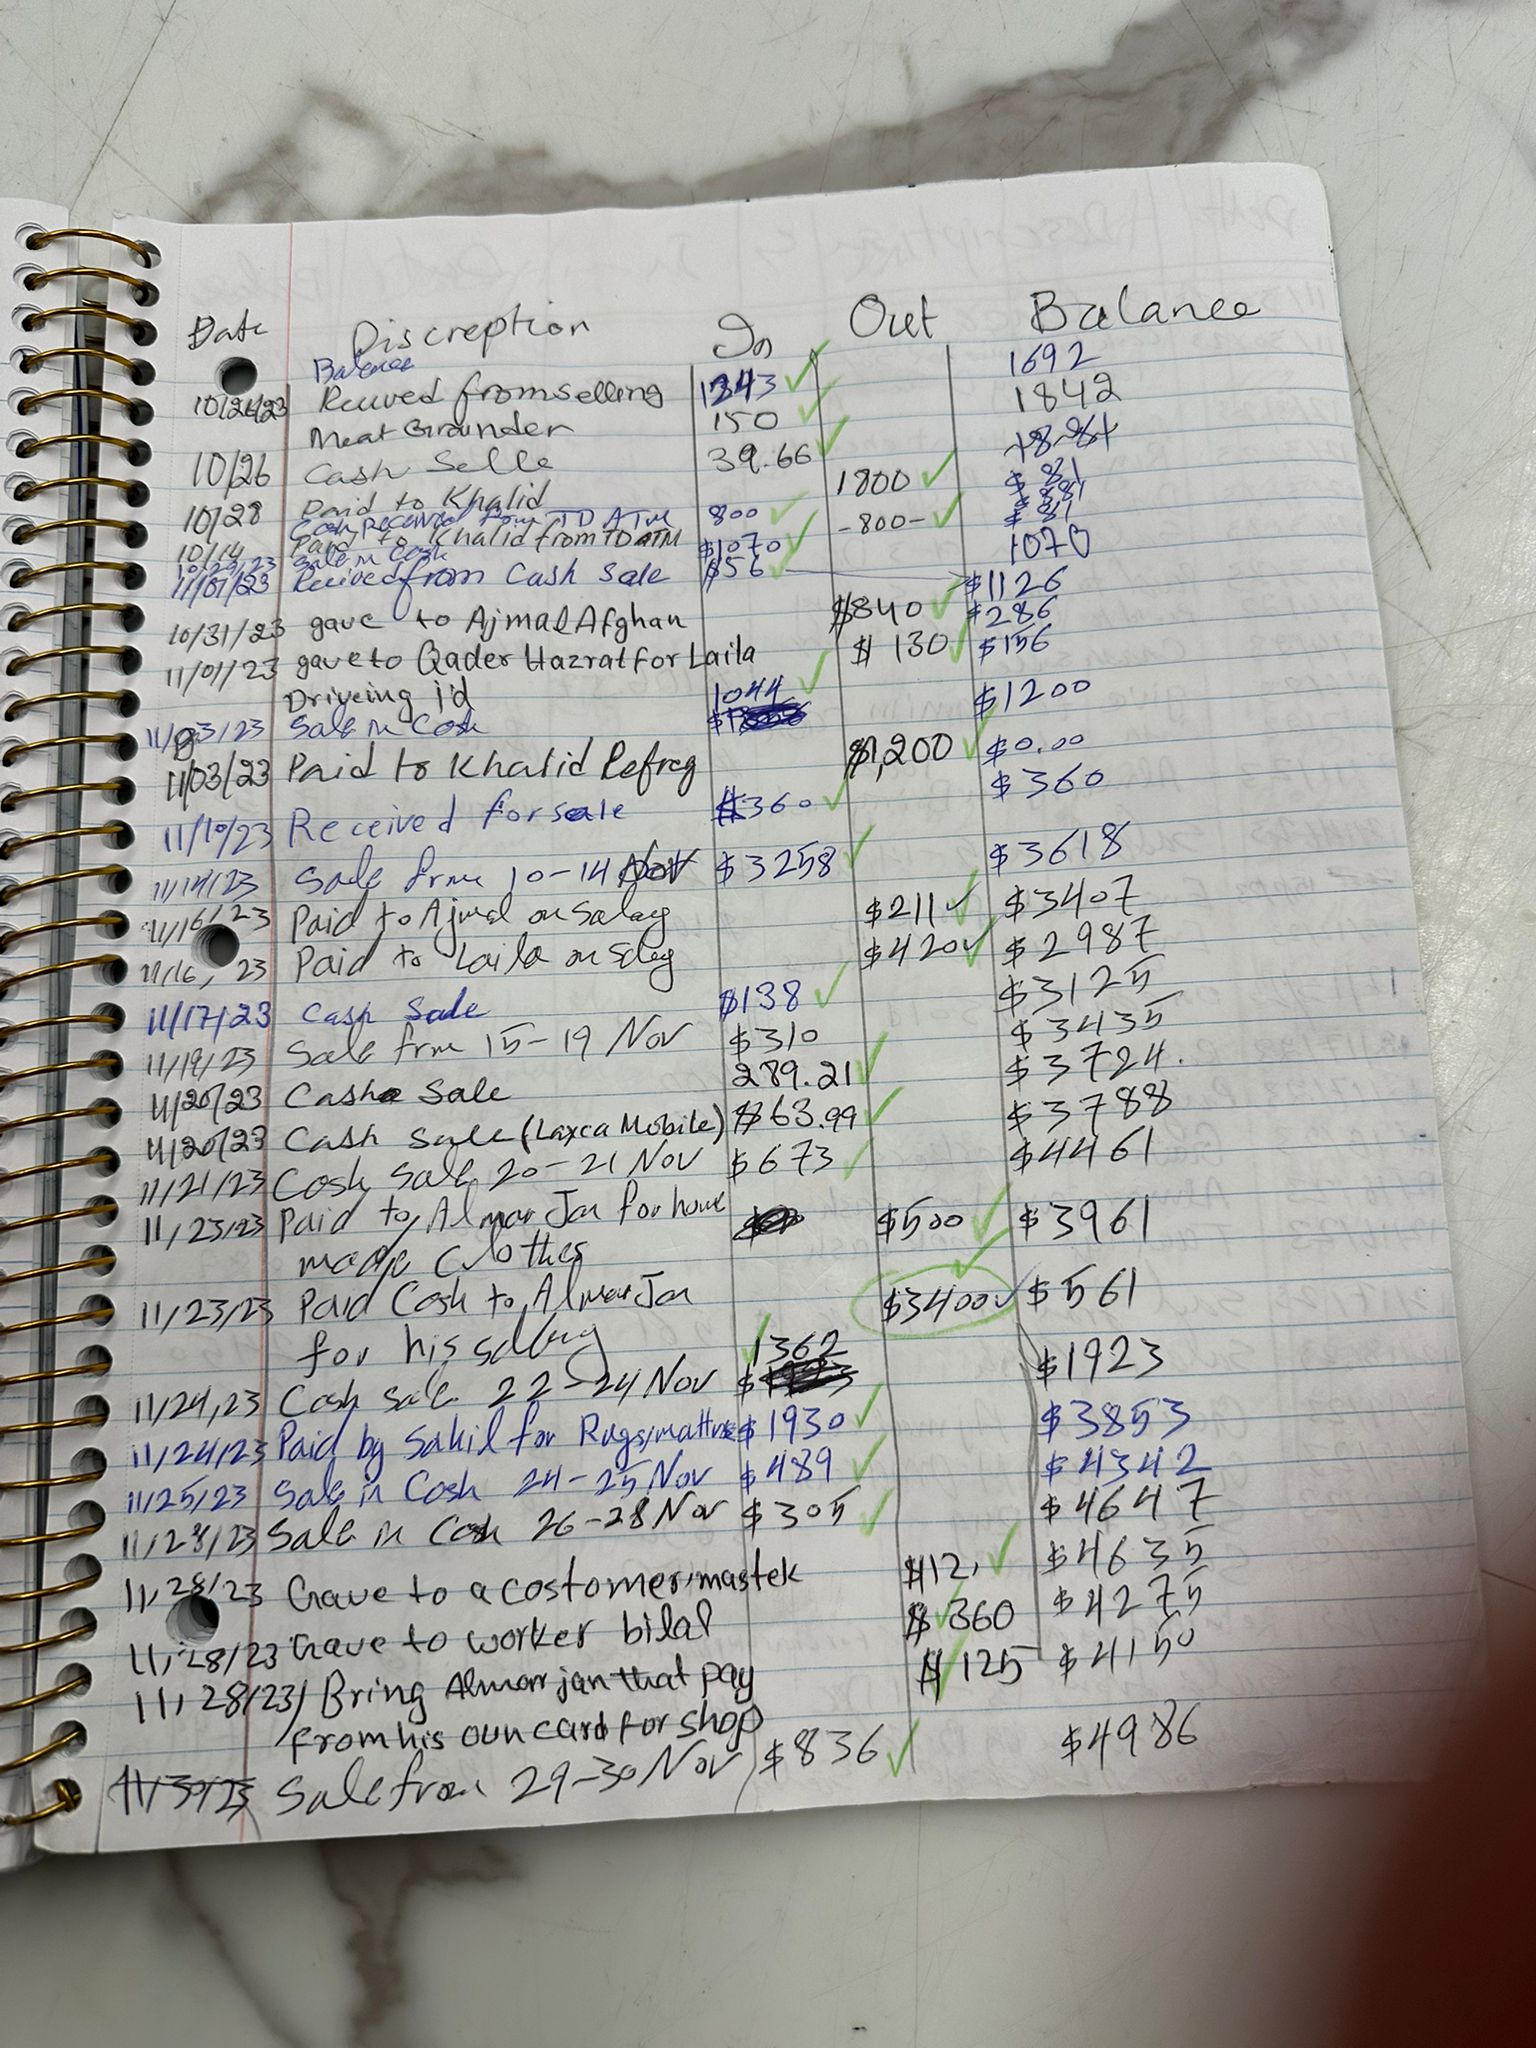 Date Discreption In Out Balance
Balance 1692
10/26/23 Recived from selling 1343 1842
Meat Grounder 150
10/26 Cash Selle 39.66 $81
10/28 Paid to Khalid 1800 $881
10/14 Cash Received from TD ATM 800 $81
Paid to Khalid from TD ATM -800-
10/29/23 Sale in Cash $1070 1070
11/01/23 Recived from Cash Sale $56 $1126
10/31/23 gave to Ajmal Afghan $840 $286
11/01/23 gave to Qader Hazrat for Laila $130 $156
Driveing i'd
11/03/23 Sale in Cash 1044 $1200
11/03/23 Paid to Khalid Refreg $1,200 $0.00
11/10/23 Received for sale $360 $360
11/14/23 Sale from 10-14 Nov $3258 $3618
11/16/23 Paid to Ajmal on Salary $211 $3407
11/16, 23 Paid to Laila on Sley $420 $2987
11/17/23 Cash Sale $138 $3125
11/19/23 Sale frm 15-19 Nov $310 $3435
11/20/23 Cash Sale 289.21 $3724.
11/20/23 Cash Sale (Laxca Mobile) $63.99 $3788
11/21/23 Cash Sale 20-21 Nov $673 $4461
11/23/23 Paid to Almar Jan for home $500 $3961
made Clothes
11/23/23 Paid Cash to Almar Jan $3400 $561
for his sallary
11/24,23 Cash Sale 22-24 Nov 1362 $1923
11/24/23 Paid by Sahil for Rugs, mattres $1930 $3853
11/25/23 Sale in Cash 24-25 Nov $489 $4342
11/28/23 Sale in Cash 26-28 Nov $305 $4647
11, 28/23 Gave to a costomer, mastek $12, $4635
11, 28/23 Gave to worker bilal $360 $4275
11, 28/23 Bring Almar jan that pay $125 $4150
From his own card for shop
11/30/23 Sale from 29-30 Nov $836 $4986